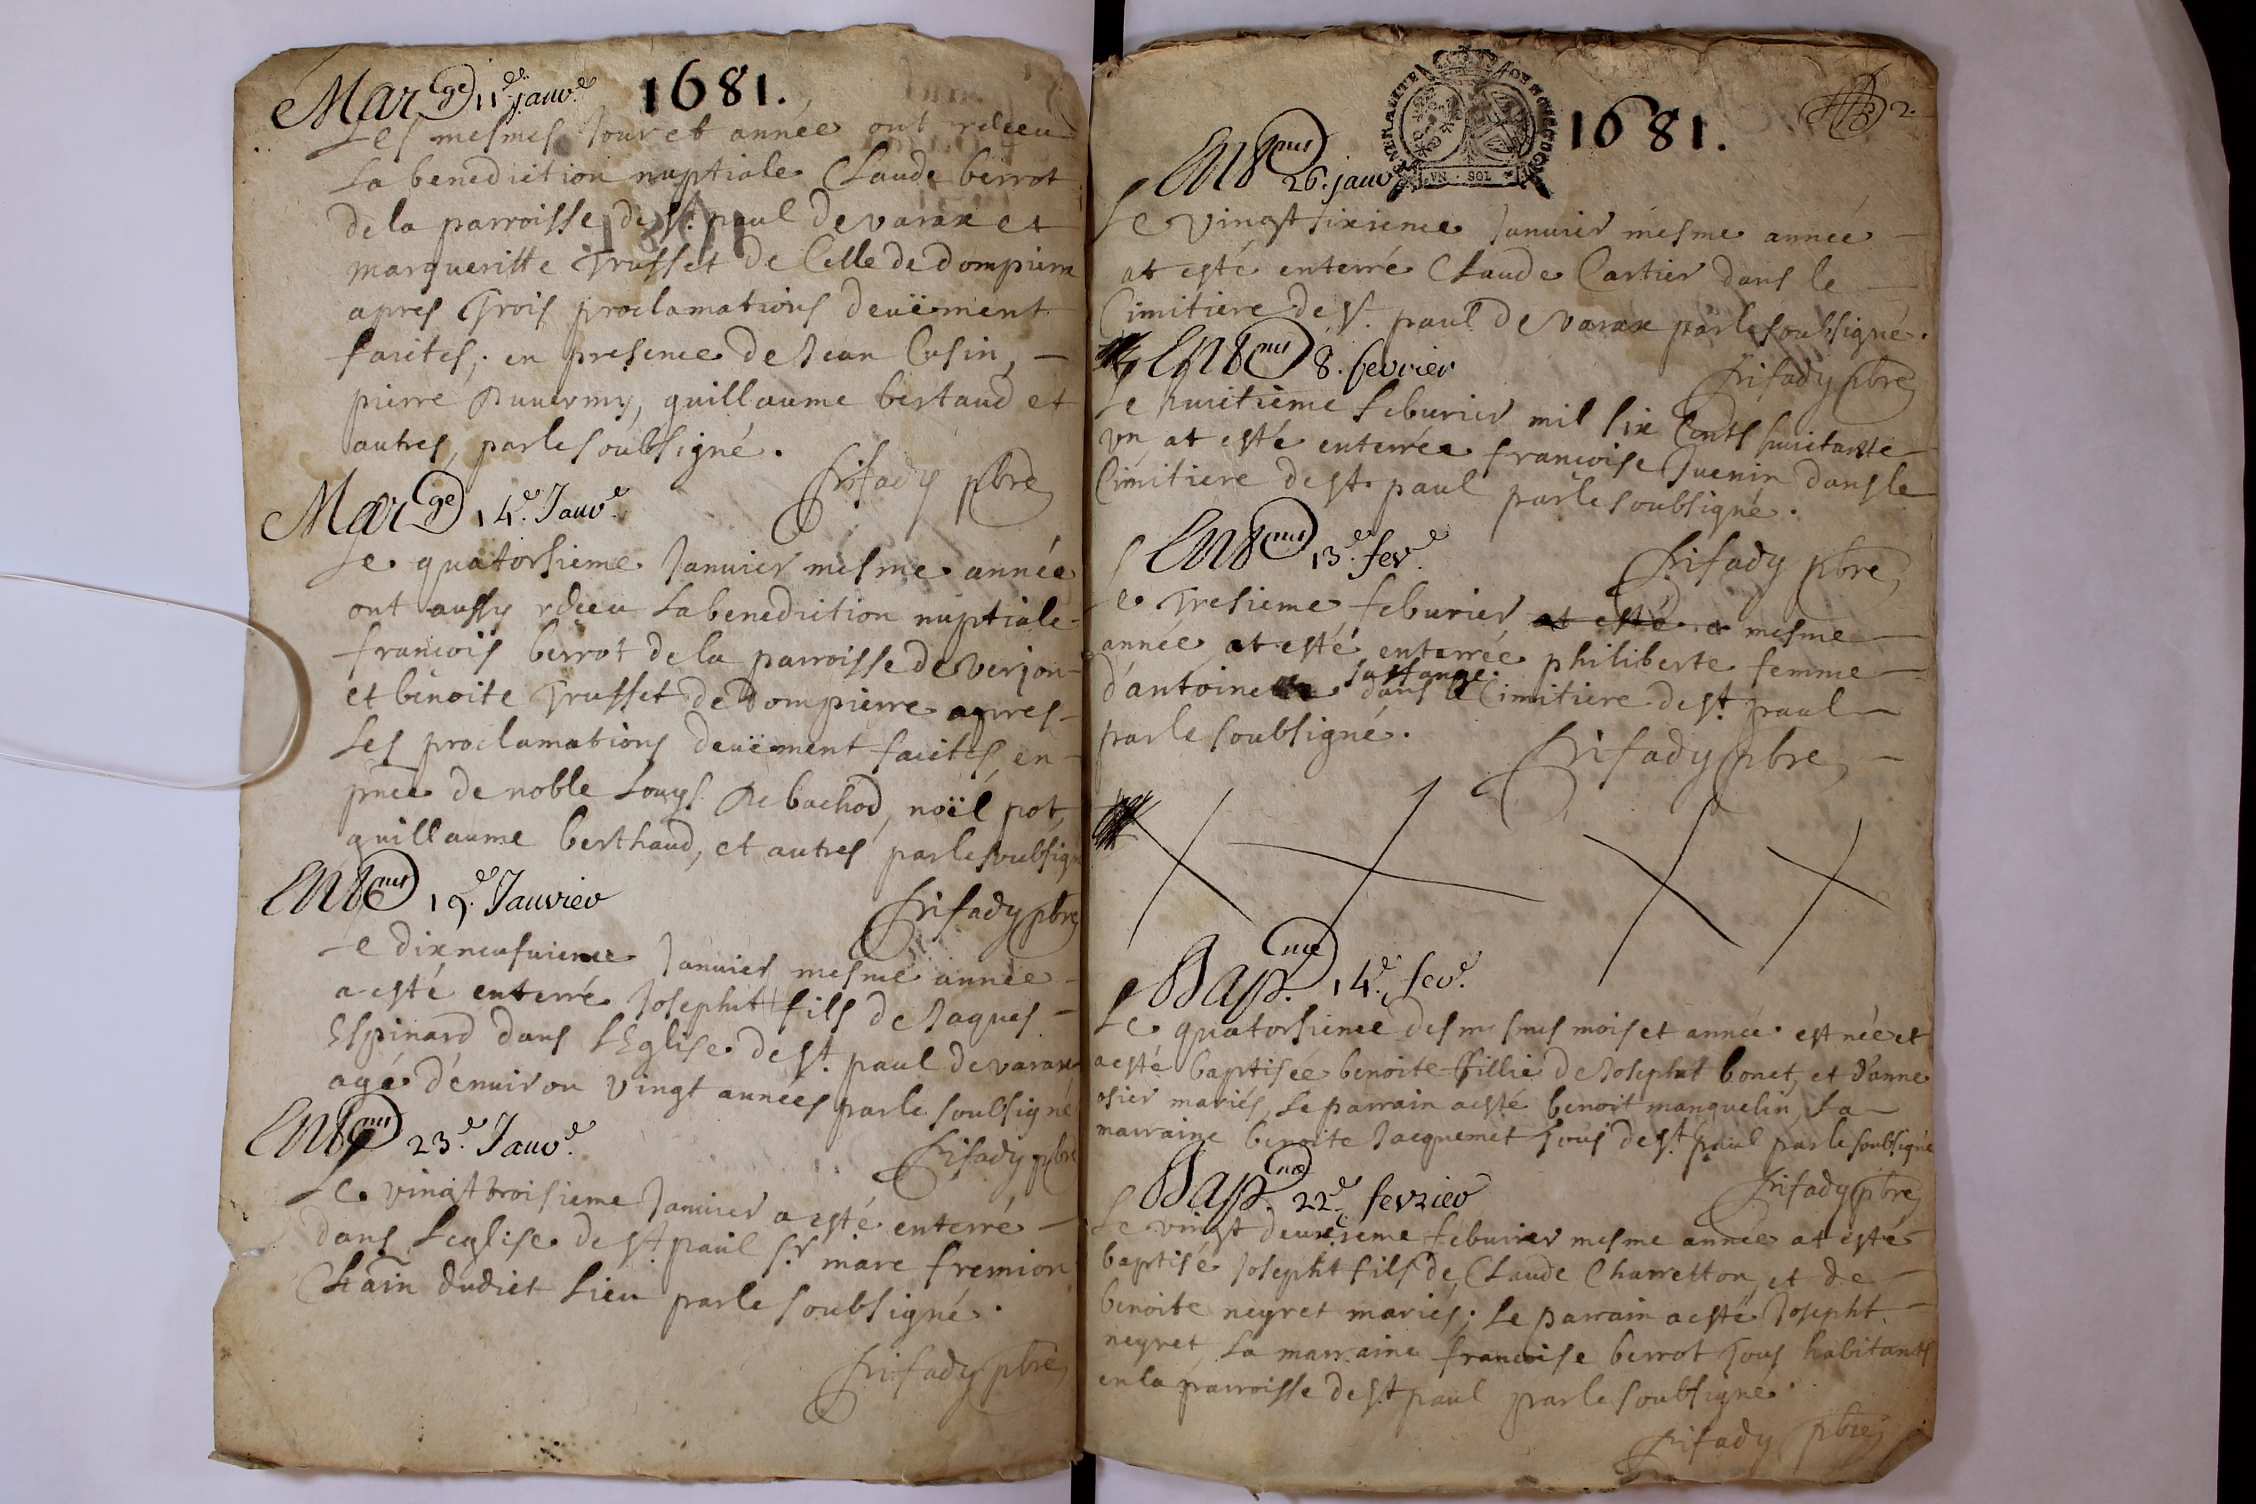 Marge 11e janve. 1681.
Les mesmes Jour et année ont receu
La benediction nuptiale Claude berrot
de la parroisse de st. paul de varax et
margueritte Trusset de Celle de dompierre
apres Trois proclamations deuëment
faictes; en presence de Jean Cusin,
pierre guillaume bertaud et
autres, par le soubsigné.
Marge 14e. Janve.
Le quatorsieme Januier mesme année
ont aussy receu La benediction nuptiale
francois berrot de la parroisse de verjon
et benoite Trusset de dompierre apres
Les proclamations deuëment faictes, en
pnce de noble Louys De bachod, noël pot,
guillaume berthaud, et autres par le soubsigné
pbre
Entmnt 19e. Janvier
Le dixneufuieme Januier mesme année
a esté enterré Josepht fils de Jaques
Espinard dans L'Eglise de st. paul de varax
agé d'enuiron vingt années par le soubsigné
pbre
Entmnt 23e. Janve.
Le vingt troisieme Januier a esté enterré
dans L'eglise de st. paul sr. marc fremion
Chăin dudict Lieu par le soubsigné.
pbre
GENERALITE DE
UN · SOL
1681. 2.
Entmnt 26. janv
Le vingt sixieme Januier mesme année
at esté enterré Claude Cartier dans le
Cimitiere de st. paul de varax par le soubsigné.
pbre
Entmnt 8. fevrier
Le huictieme feburier mil six Cents huictante
vn, at esté enterrée francoise Juenin dans le
Cimitiere de st. paul par le soubsigné.
pbre
Entmnt 13e. fev.e
Le Tresieme feburier at esté mesme
année at esté enterrée philiberte femme
d'antoine dans le Cimitiere de st. paul
par le soubsigné.
pbre
Bapt. 14e. fev.e
Le quatorsieme des mesmes mois et année est née et
a esté baptisée benoite fillie de Josepht bonet, et d'anne
osier mariés, Le parrain a esté benoit manguelin, La
marraine benoite Jacquemet Tous de st. paul par le soubsigné
pbre
Bapt. 22e fevrier
Le vingt deuxieme feburier mesme année at esté
baptisé Josepht fils de Claude Charretton, et de
benoite neyret mariés; Le parrain a esté Josepht
neyret, La marraine francoise berrot Tous habitants
en la parroisse de st. paul par le soubsigné.
pbre